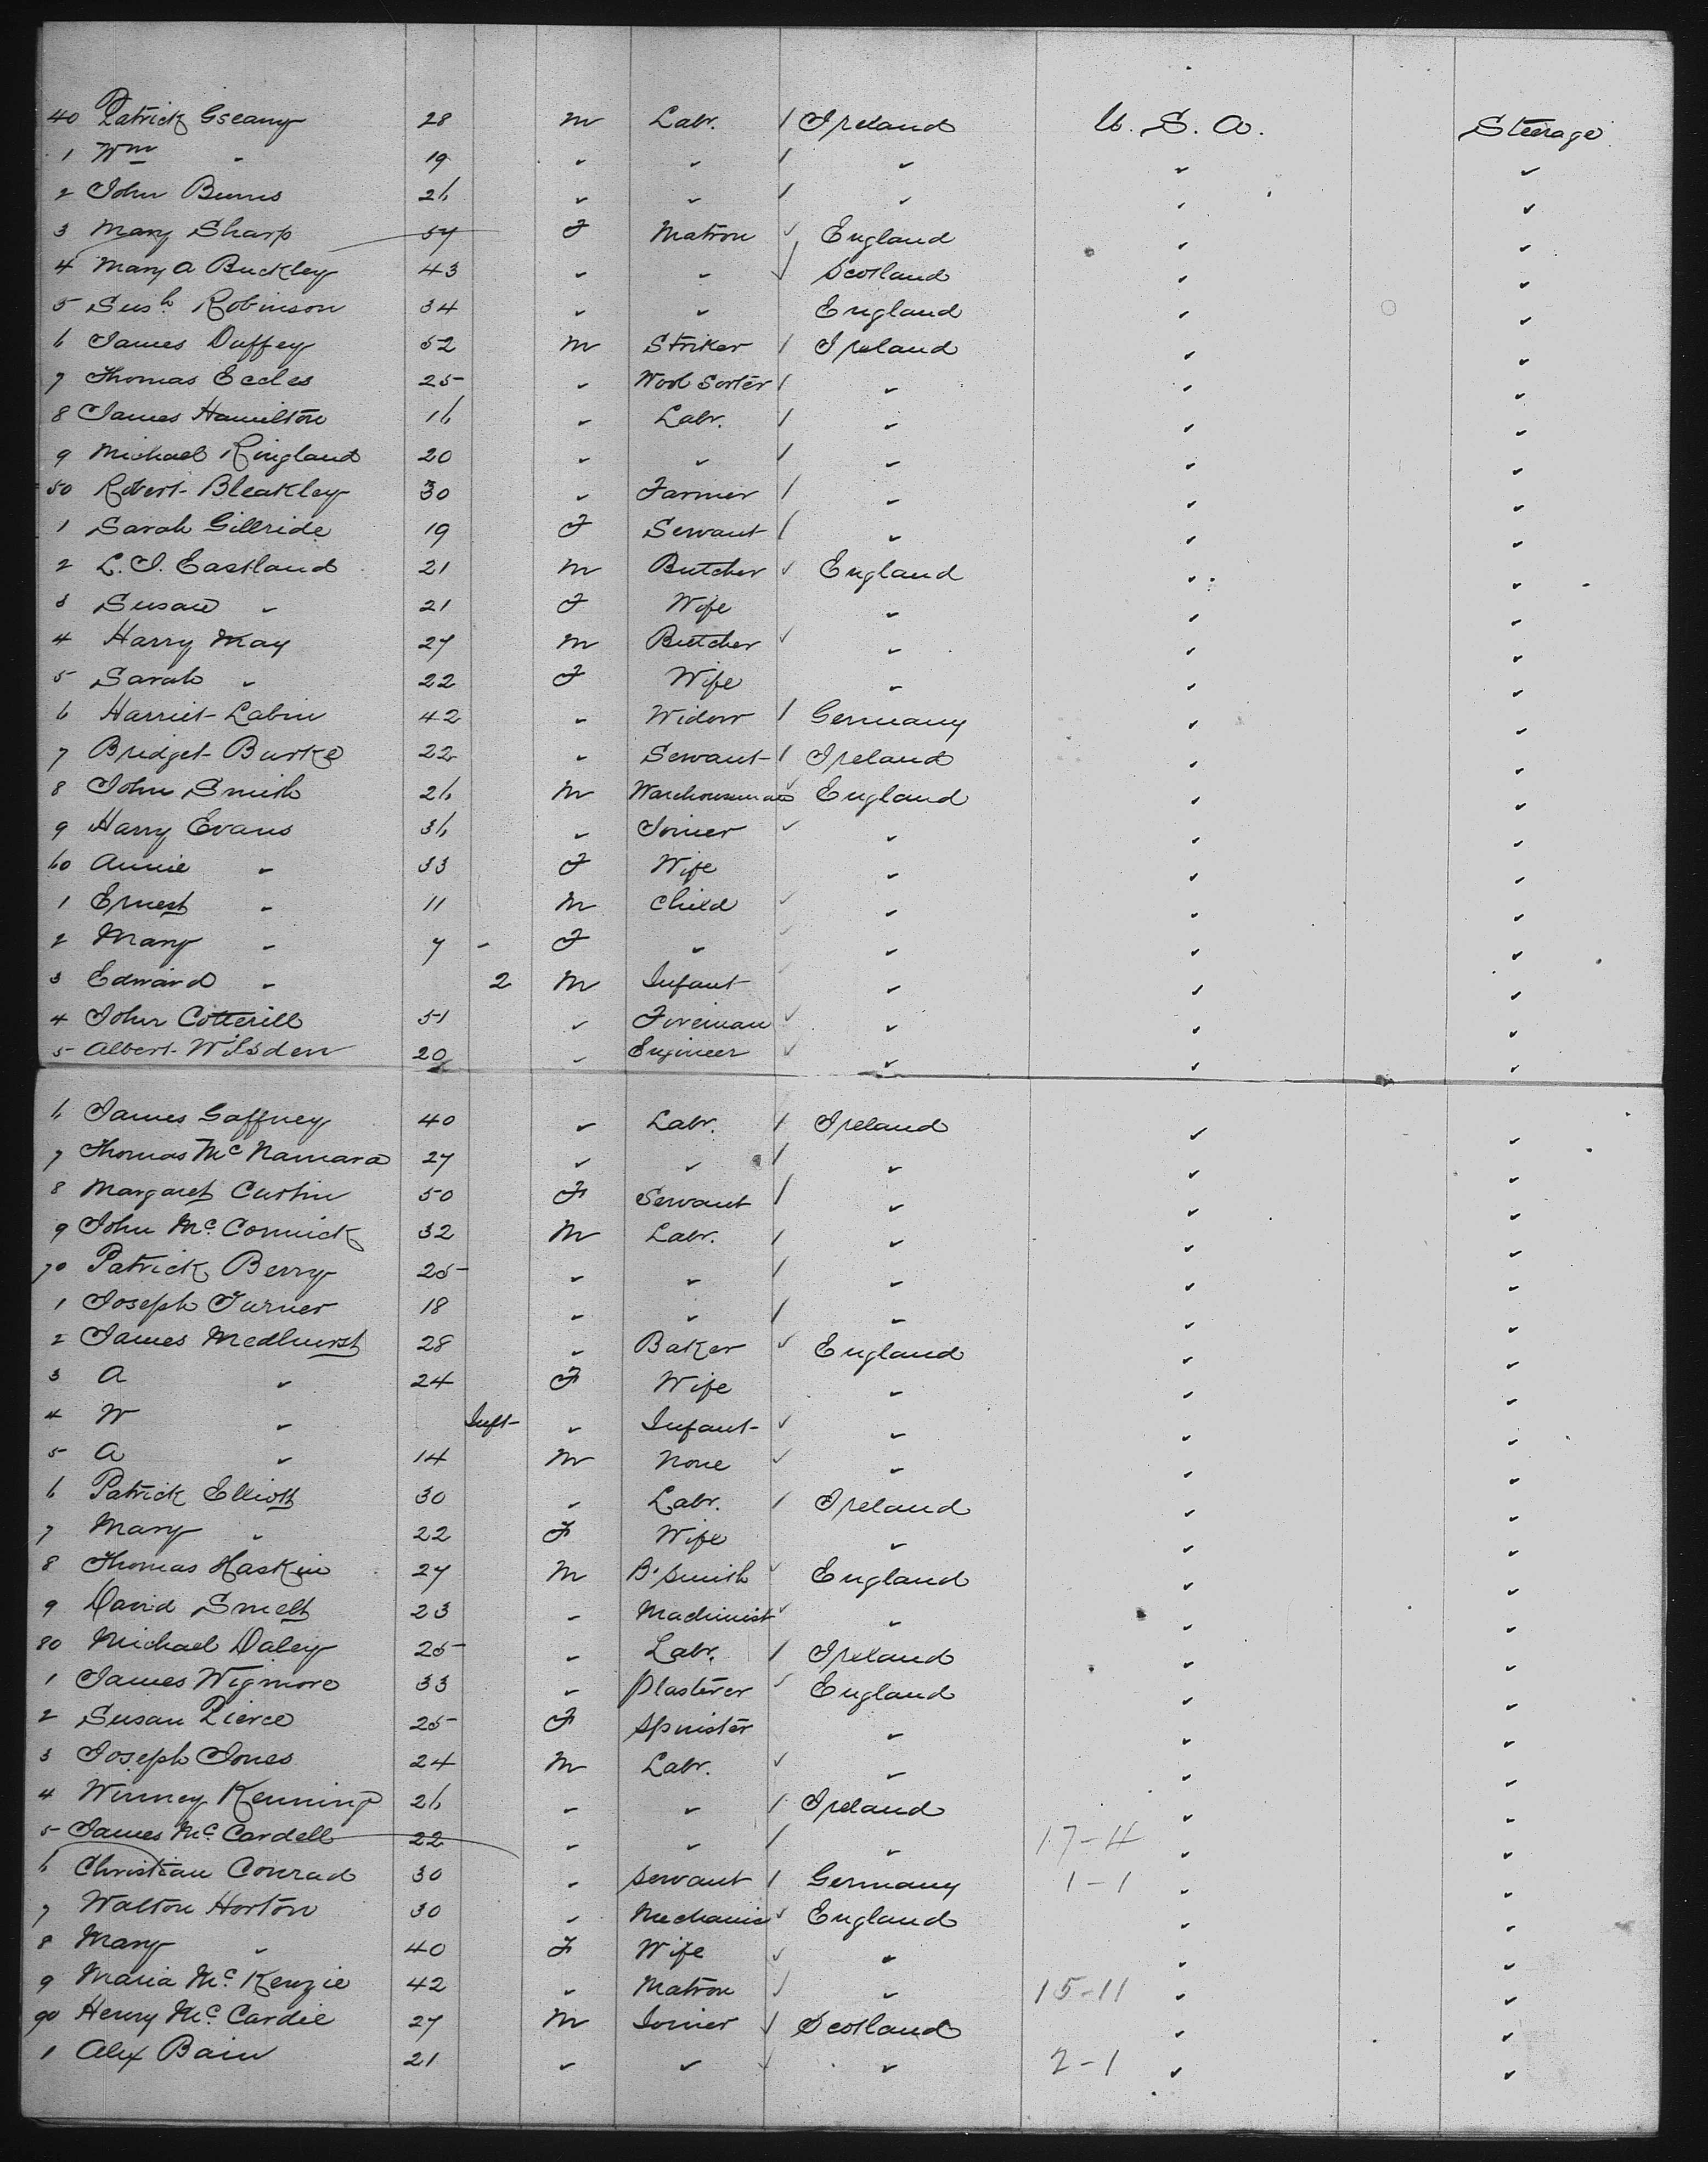 40 Patrick Gseany 28 M Labr. / Ireland U. S. A. Steerage
1 Wm " 19 " " / " " "
2 John Burns 26 " " / " " "
3 Mary Sharp 57 F Matron ✓ England " "
4 Mary A Buckley 43 " " ✓ Scotland " "
5 Sush Robinson 34 " " England " "
6 James Duffey 52 M Striker / Ireland " "
7 Thomas Eccles 25 " Wool Sorter / " " "
8 James Hamilton 16 " Labr. / " " "
9 Michael Ringland 20 " " / " " "
50 Robert Bleakley 30 " Farmer / " " "
1 Sarah Gillride 19 F Servant / " " "
2 L. J. Eastland 21 M Butcher ✓ England " "
3 Susan " 21 F Wife " " "
4 Harry May 27 M Butcher ✓ " " "
5 Sarah " 22 F Wife " " "
6 Harriet Labin 42 " Widow / Germany " "
7 Bridget Burke 22 " Servant / Ireland " "
8 John Smith 26 M Warehouseman ✓ England " "
9 Harry Evans 36 " Joiner ✓ " " "
60 Annie " 33 F Wife " " "
1 Ernest " 11 M Child ✓ " " "
2 Mary " 7 - F " ✓ " " "
3 Edward " 2 M Infant ✓ " " "
4 John Cotterill 51 " Foreman ✓ " " "
5 Albert Wilsden 20 " Engineer ✓ " " "
6 James Gaffney 40 " Labr. / Ireland " "
7 Thomas McNamara 27 " " / " " "
8 Margaret Curtin 50 F Servant / " " "
9 John McCormick 32 M Labr. / " " "
70 Patrick Berry 25 " " / " " "
1 Joseph Turner 18 " " / " " "
2 James Medhurst 28 " Baker ✓ England " "
3 A " 24 F Wife " " "
4 W " Inft " Infant ✓ " " "
5 A " 14 M None ✓ " " "
6 Patrick Elliott 30 " Labr. / Ireland " "
7 Mary " 22 F Wife " " "
8 Thomas Haskin 27 M B'smith ✓ England " "
9 David Smelt 23 " Machinist ✓ " " "
80 Michael Daley 25 " Labr. / Ireland " "
1 James Wigmore 33 " Plasterer ✓ England " "
2 Susan Pierce 25 F Spinister " " "
3 Joseph Jones 24 M Labr. ✓ " " "
4 Winney Kenning 26 " " / Ireland " "
5 James McCardell 22 " " / " 17-4 " "
6 Christian Conrad 30 " Servant / Germany 1-1 " "
7 Walton Horton 30 " Mechanic ✓ England " "
8 Mary " 40 F Wife ✓ " " "
9 Maria McKenzie 42 " Matron ✓ " 15-11 " "
90 Henry McCardie 27 M Joiner ✓ Scotland " "
1 Alex Bain 21 " " ✓ " 2-1 " "